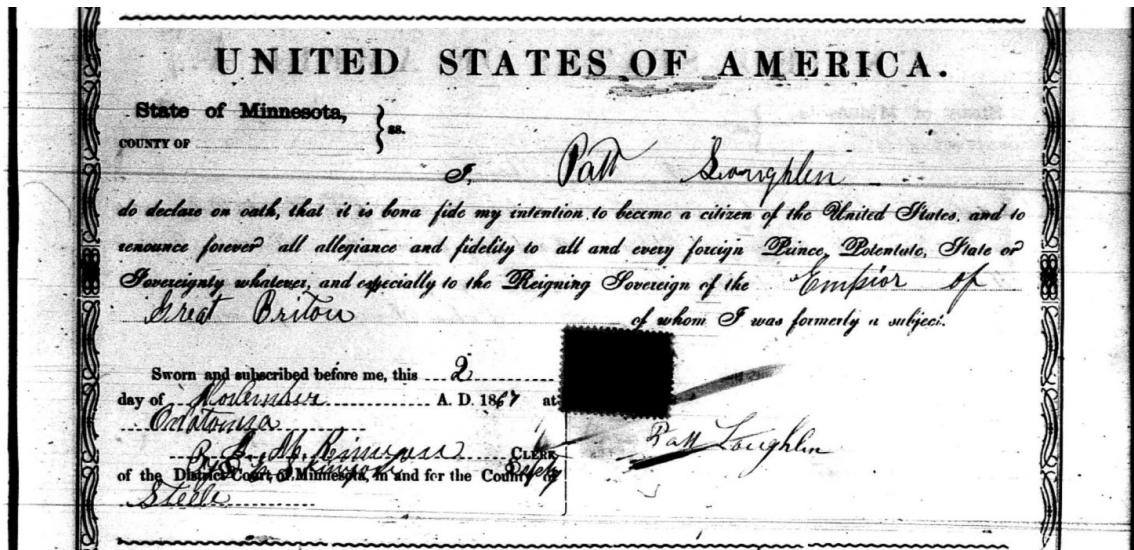 UNITED STATES OF AMERICA.
State of Minnesota,
COUNTY OF
ss.
I, Patt Loughlen
do declare on oath, that it is bona fide my intention to become a citizen of the United States, and to
renounce forever all allegiance and fidelity to all and every foreign Prince, Potentate, State or
Sovereignty whatever, and especially to the Reigning Sovereign of the Empior of
Great Briton of whom I was formerly a subject.
Sworn and subscribed before me, this 2
day of November A. D. 1867 at
Owatonna
Patt Loughlin
CLERK
Deputy
of the District Court, of Minnesota, in and for the County of
Steele